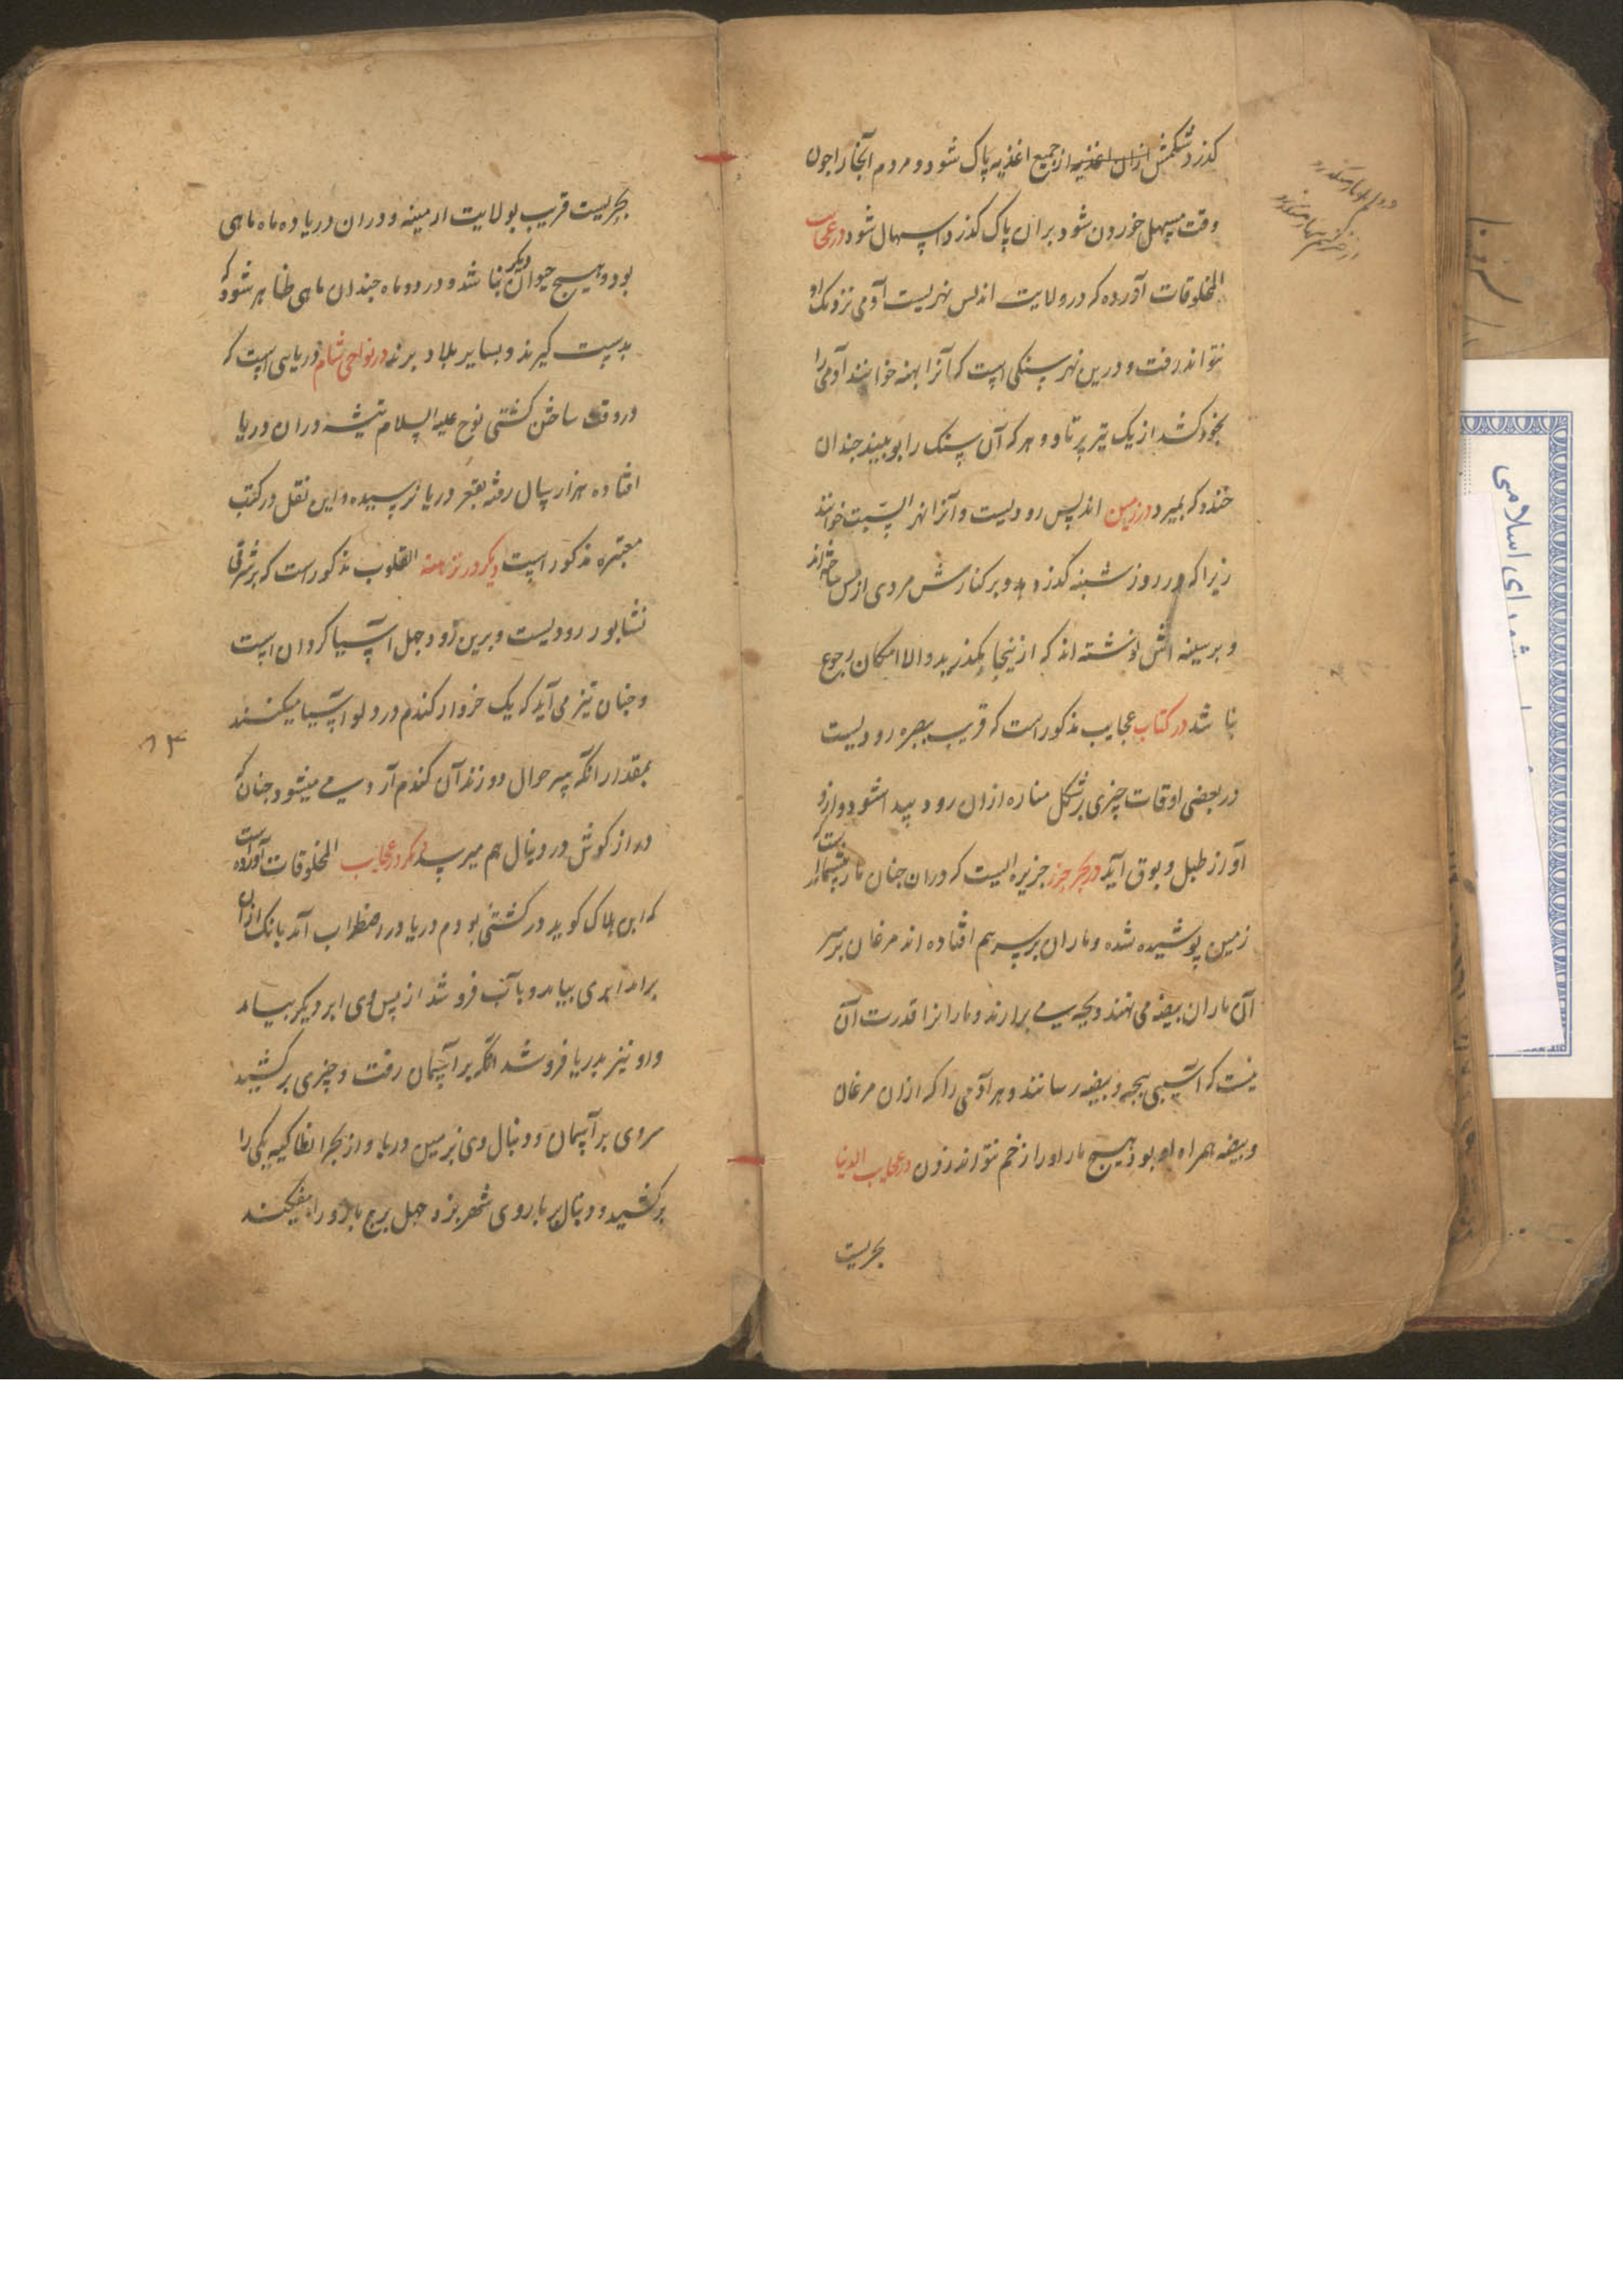 کذرد شکمش ازان اغذیه از جمیع اغذیه پاک شود و مردم آنجا را جون
وقت مسهل خوردن شود بران پاک کذرد اسهال شود در عجایب
المخلوقات آورده که در ولایت اندلس نهریست آدمی نزدیک او
نتواند رفت و درین نهر سنکی است که آنرا بهته خوانند آدمی را
بخود کشد از یک تیر پرتاو و هر که آن سنک را بو بیند جندان
خنده که بمیرد در زمین اندلس رودیست و آنرا نهر السبت خوانند
زیرا که در روز شنبه کذر دهد و بر کنارش مردی از مس ساخته‌اند
و بر سینه اش نوشته اند که ازینجا مکذرید والا امکان رجوع
نباشد در کتاب عجایب مذکور است که قریب ببصره رودیست
در بعضی اوقات چیزی بر شکل مناره ازان رود پیدا شود و ازو
آواز طبل و بوق آید در بحر خزر جزیره ایست که دران جنان مار بسیار است که
زمین پوشیده شده و ماران بر سر هم افتاده اند مرغان بر سر
آن ماران بیضه می نهند و بجه می برارند و مارانرا قدرت آن
نیست که آسیبی ببجه و بیضه رسانند و هر آدمی را که ازان مرغان
و بیضه همراه او بود هیچ مار او را زخم نتواند زدن در عجایب الدنیا
بحریست
بحریست قریب بولایت ارمینه و دران دریا ده ماه ماهی
بود و هیچ حیوان دیکر نباشد و در دو ماه جندان ماهی ظاهر شود که
بدست کیرند و بسایر بلاد برند در نواحی شام دریایی است که
در وقت ساختن کشتی نوح علیه السلام تیشه دران دریا
افتاده هزار سال رفته بقعر دریا نرسیده و این نقل در کتب
معتبره مذکور است دیکر در نزهة القلوب مذکور است که بر شرقی
نشابور رودیست و برین رود جهل آسیا کردان است
و جنان تیز می آید که یک خروار کندم در دلو آسیا میکنند
بمقدار انکه سر جوال دوزند آن کندم آرد می میشود جنانکه
المخلوقات آورده است
که ابن هلاک کوید در کشتی بودم دریا در اضطراب آمد بانک ازان
برامد ابری بیامد و بآب فرو شد از پس وی ابر دیکر بیامد
و او نیز بدریا فرو شد انکه بر آسمان رفت و چیزی بر کشید
سروی بر آسمان و دنبال وی بر زمین دریا و از بحر انطاکیه یکی را
بر کشید و دنبال بر باروی شهر بزد جهل برج بارو را بیفکند